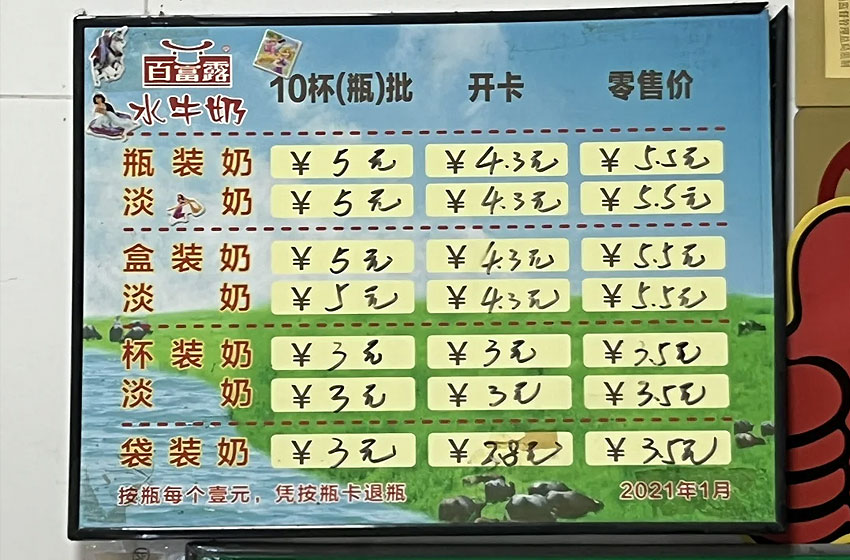 百富露
水牛奶
10杯(瓶)批 开卡 零售价
瓶装奶 ¥5元 ¥4.3元 ¥5.5元
淡奶 ¥5元 ¥4.3元 ¥5.5元
盒装奶 ¥5元 ¥4.3元 ¥5.5元
淡奶 ¥5元 ¥4.3元 ¥5.5元
杯装奶 ¥3元 ¥3元 ¥3.5元
淡奶 ¥3元 ¥3元 ¥3.5元
袋装奶 ¥3元 ¥2.8元 ¥3.5元
按瓶每个壹元，凭按瓶卡退瓶 2021年1月